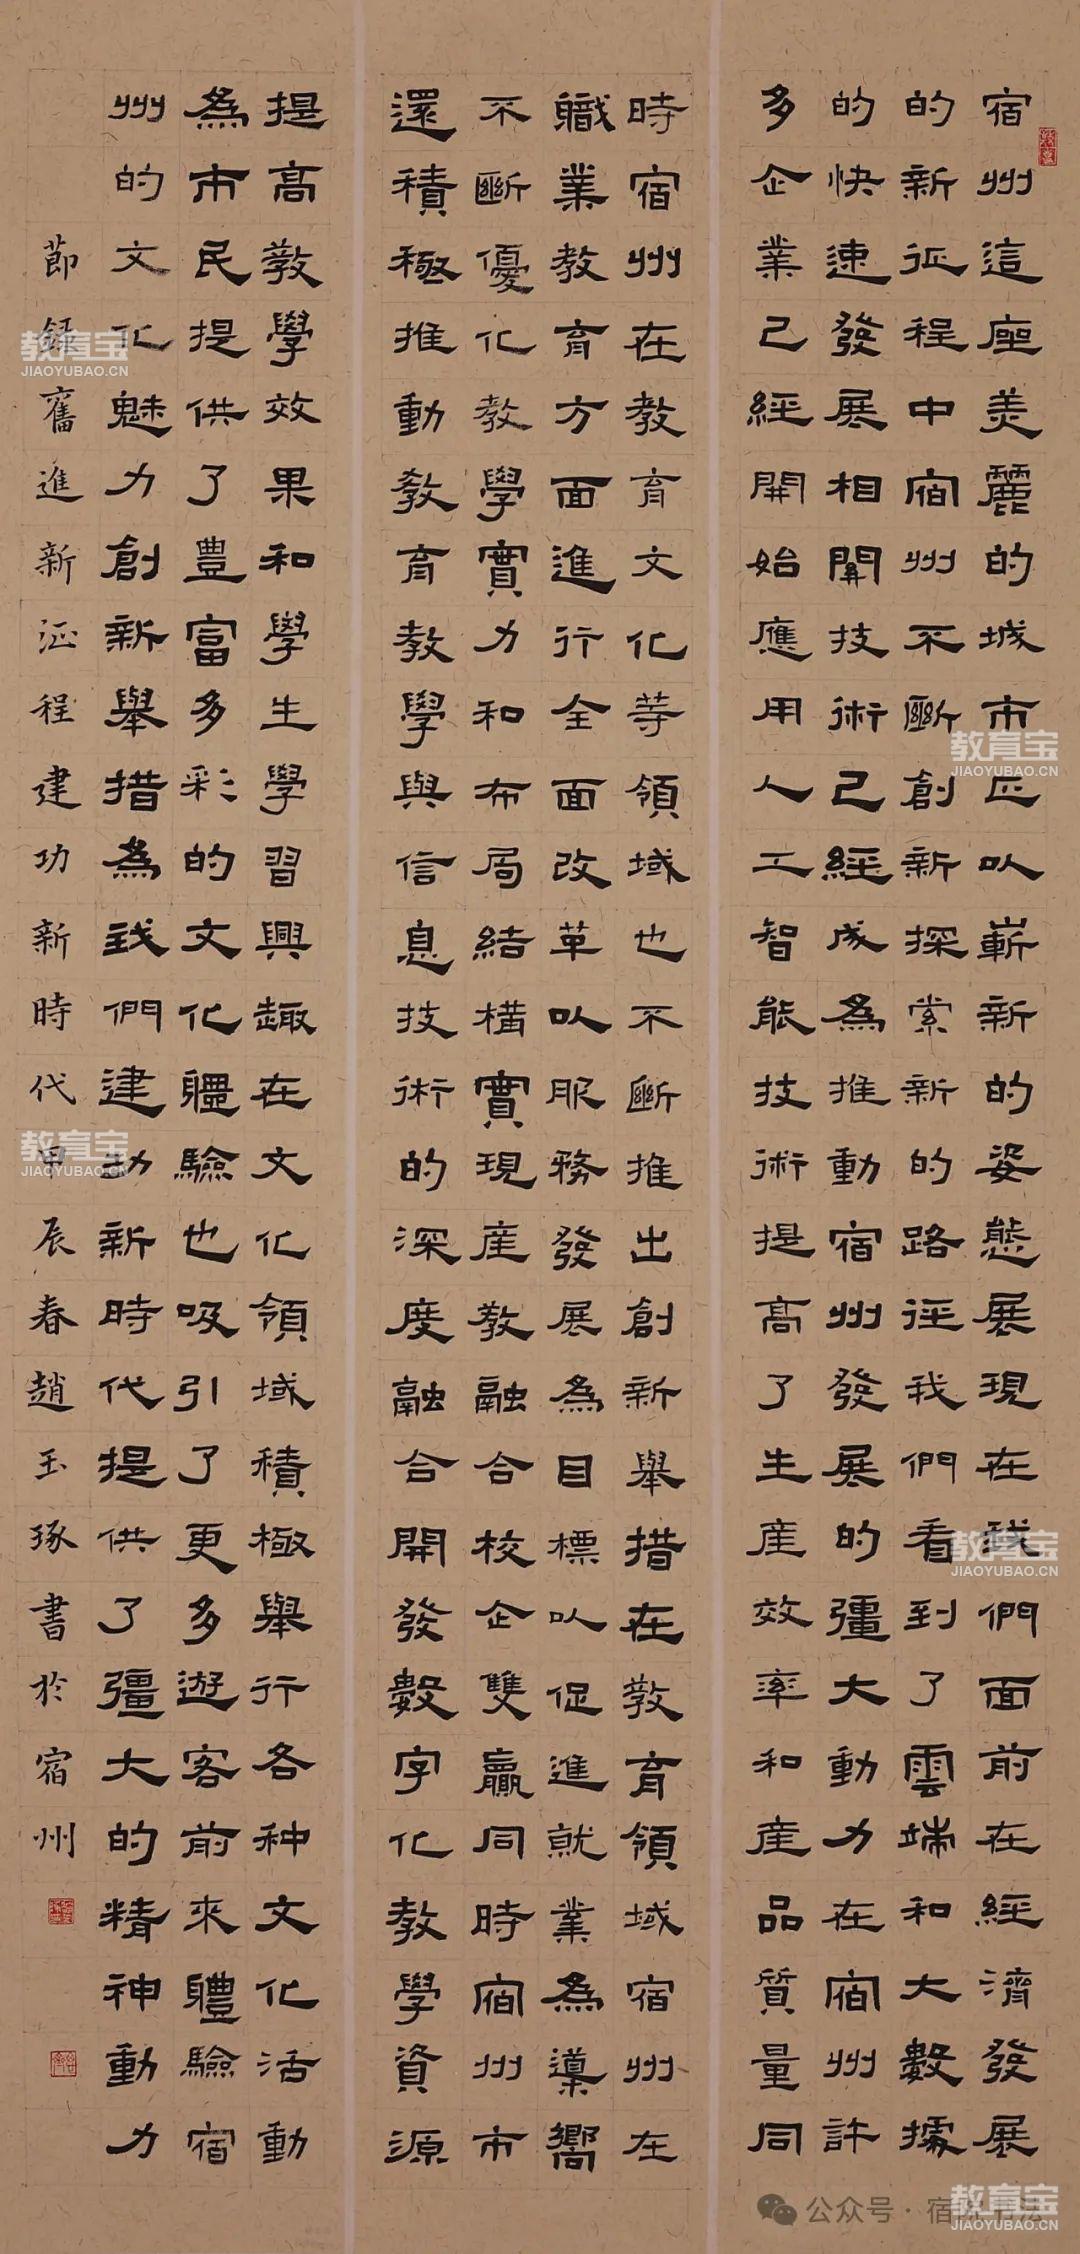 宿州這座美麗的城市正以嶄新的姿態展現在我們面前在經濟發展
的新征程中宿州不斷創新探索新的路徑我們看到了雲端和大數據
的快速發展相關技術已經成為推動宿州發展的彊大動力在宿州許
多企業已經開始應用人工智能技術提高了生產效率和產品質量同
時宿州在教育文化等領域也不斷推出創新舉措在教育領域宿州在
職業教育方面進行全面改革以服務發展為目標以促進就業為導嚮
不斷優化教學實力和布局結構實現產教融合校企雙贏同時宿州市
還積極推動教育教學與信息技術的深度融合開發數字化教學資源
提高教學效果和學生學習興趣在文化領域積極舉行各种文化活動
為市民提供了豐富多彩的文化體驗也吸引了更多遊客前來體驗宿
州的文化魅力創新舉措為我們建功新時代提供了彊大的精神動力
節錄奮進新征程建功新時代甲辰春趙玉琢書於宿州
教育宝
JIAOYUBAO.CN
教育宝
JIAOYUBAO.CN
教育宝
JIAOYUBAO.CN
教育宝
JIAOYUBAO.CN
公众号·宿
教育宝
JIAOYUBAO.CN